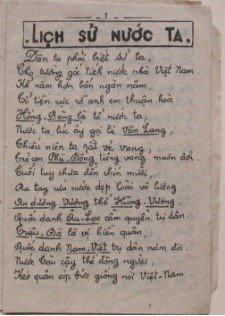 - 1 -
LỊCH SỬ NƯỚC TA.
Dân ta phải biết sử ta,
Cho tường gốc tích nước nhà Việt Nam.
Kể năm hơn bốn ngàn năm,
Tổ tiên rực rỡ anh em thuận hoà.
Hồng-Bàng là tổ nước ta,
Nước ta lúc ấy gọi là Văn Lang,
Thiếu niên ta rất vẻ vang,
Trẻ con Phù-Đổng tiếng vang muôn đời.
Tuổi tuy chưa đến chín mười,
Ra tay cứu nước dẹp loài vô lương
An dương Vương thế Hùng-Vương,
Quốc danh Âu-Lạc cầm quyền trị dân.
Triệu-Đà là vị hiền quân,
Quốc danh Nam-Việt trị dân năm đời.
Nước Tàu cậy thế đông người,
Kéo quân áp bức giống nòi Việt-Nam.